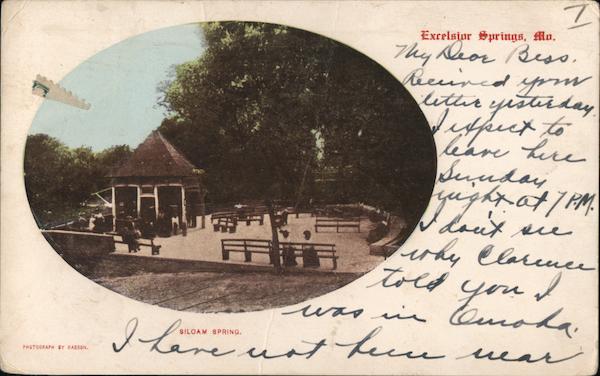 I
Excelsior Springs, Mo.
My Dear Bess.
Received your
letter yesterday.
I expect to
leave here
Sunday
night at 7 P.M.
I don't see
why Clarence
told you I
was in Omoha.
I have not been near
SILOAM SPRING.
PHOTOGRAPH BY HASSON.